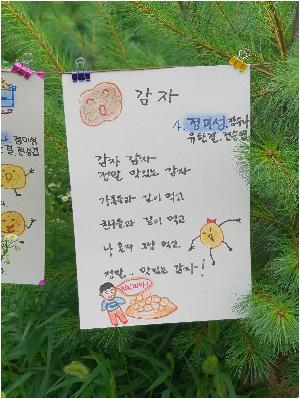 감자
4. 정미성, 김수나
유한결, 전승현
감자 감자
정말 맛있는 감자
가족들과 같이 먹고
친구들과 같이 먹고
나 혼자 그냥 먹고,
정말.. 맛있는 감자~!
정미성